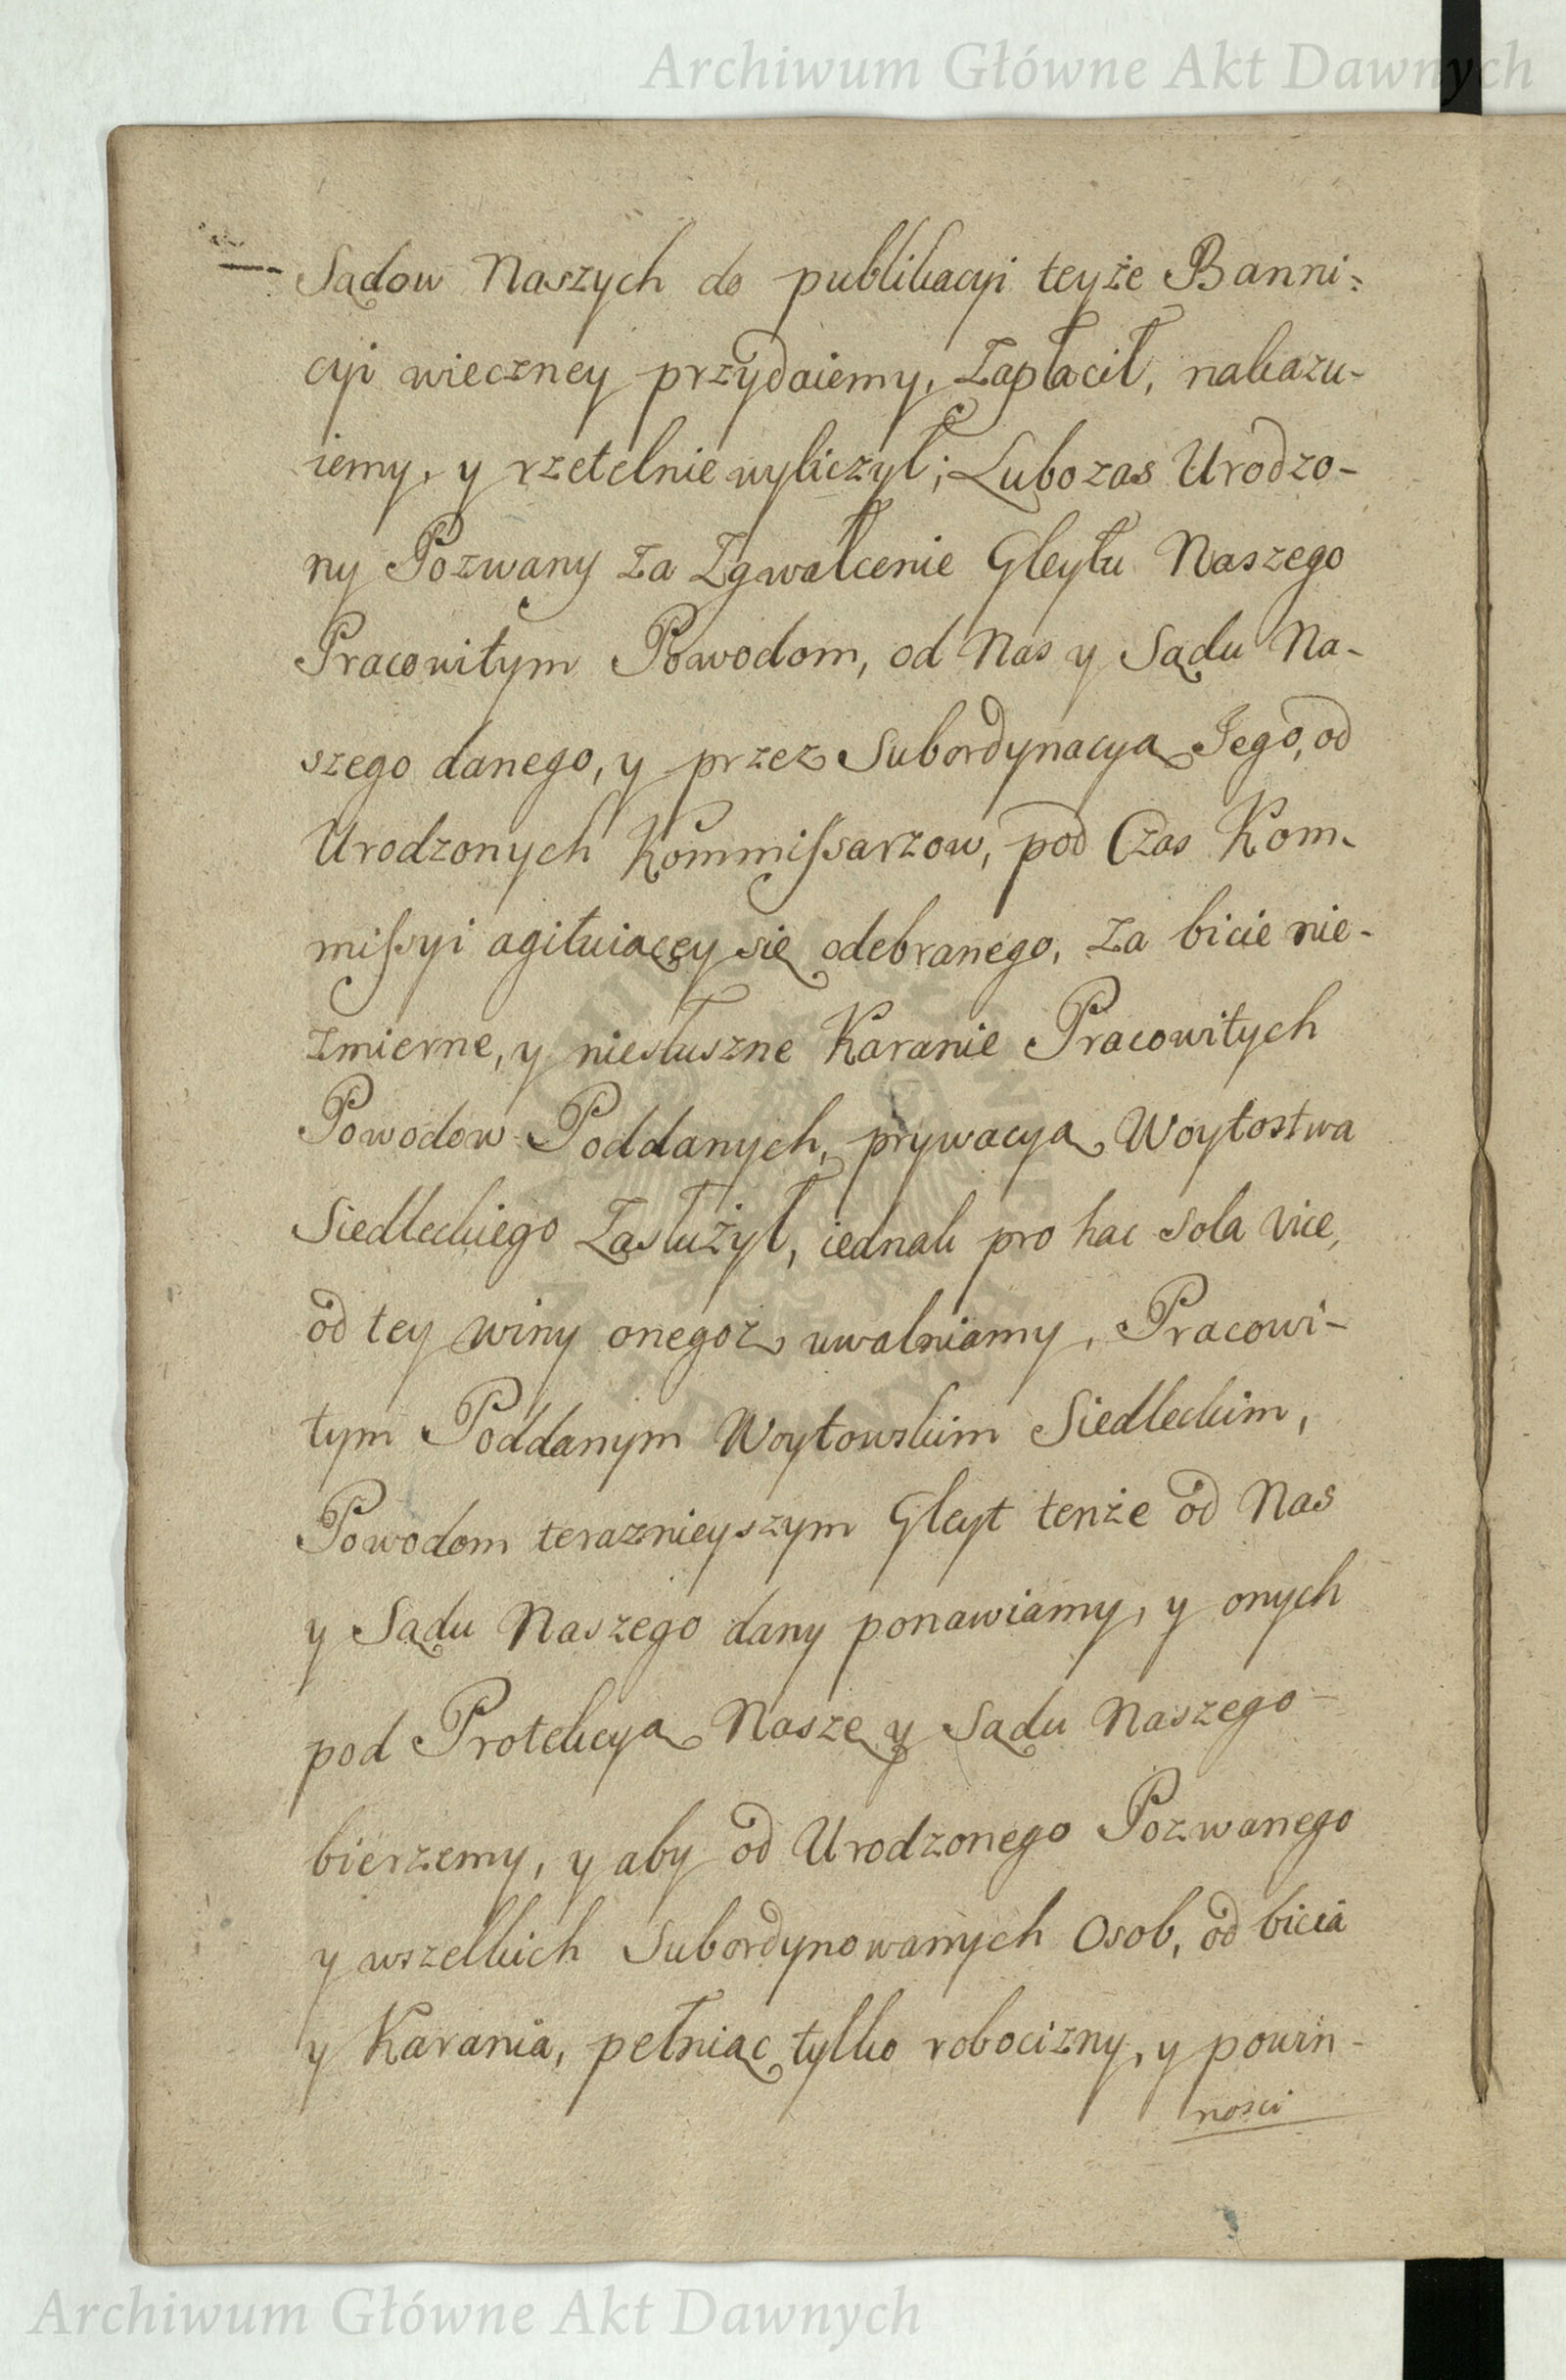 Archiwum Główne Akt Dawnych
Sądow Naszych do publikacyi teyże Banni:
cyi wieczney przydaiemy, Zapłacił, nakazu-
iemy, y rzetelnie wyliczył; Lubo zas Urodzo-
ny Pozwany za Zgwałcenie Gleytu Naszego
Pracowitym Powodom, od Nas y Sądu Na-
szego danego, y przez Subordynacyą Jego, od
Urodzonych Kommissarzow, pod Czas Kom-
missyi agituiącey się odebranego, za bicie nie-
zmierne, y niesłuszne Karanie Pracowitych
Powodow Poddanych, prywacyą Woytostwa
Siedleckiego Zasłużył, iednak pro hac sola vice,
od tey winy onegoz uwalniamy, Pracowi-
tym Poddanym Woytowskim Siedleckim,
Powodom teraznieyszym Gleyt tenże od Nas
y Sądu Naszego dany ponawiamy, y onych
pod Protekcyą Naszę y Sądu Naszego
bierzemy, y aby od Urodzonego Pozwanego
y wszelkich Subordynowanych Osob, od bicia
y Karania, pełniąc tylko robocizny, y powin-
nosci
Archiwum Główne Akt Dawnych